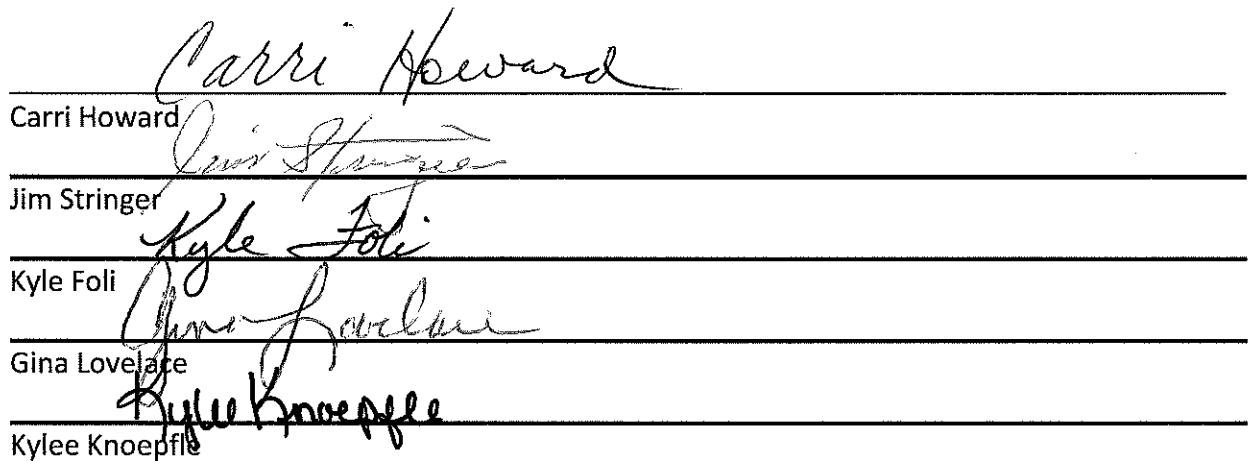 Carri Howard
Carri Howard
Jim Stringer
Jim Stringer
Kyle Foli
Kyle Foli
Gina Lovelace
Gina Lovelace
Kylee Knoepfle
Kylee Knoepfle